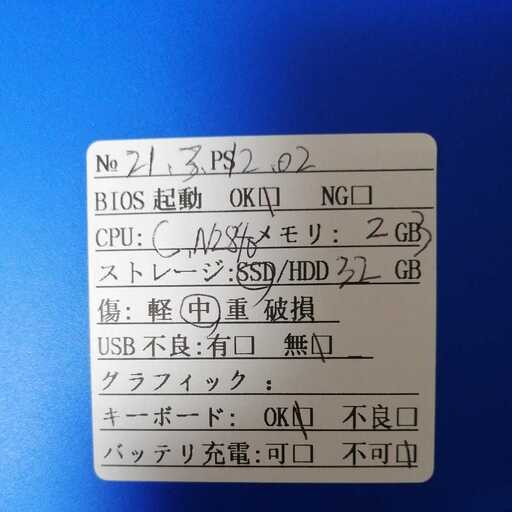 № 21.3.PS12.02
BIOS 起動 OK☑ NG□
CPU: C,N2840 メモリ: 2 GB
ストレージ:SSD/HDD 32 GB
傷: 軽 中 重 破損
USB 不良:有□ 無☑
グラフィック:
キーボード: OK☑ 不良□
バッテリ充電:可□ 不可☑